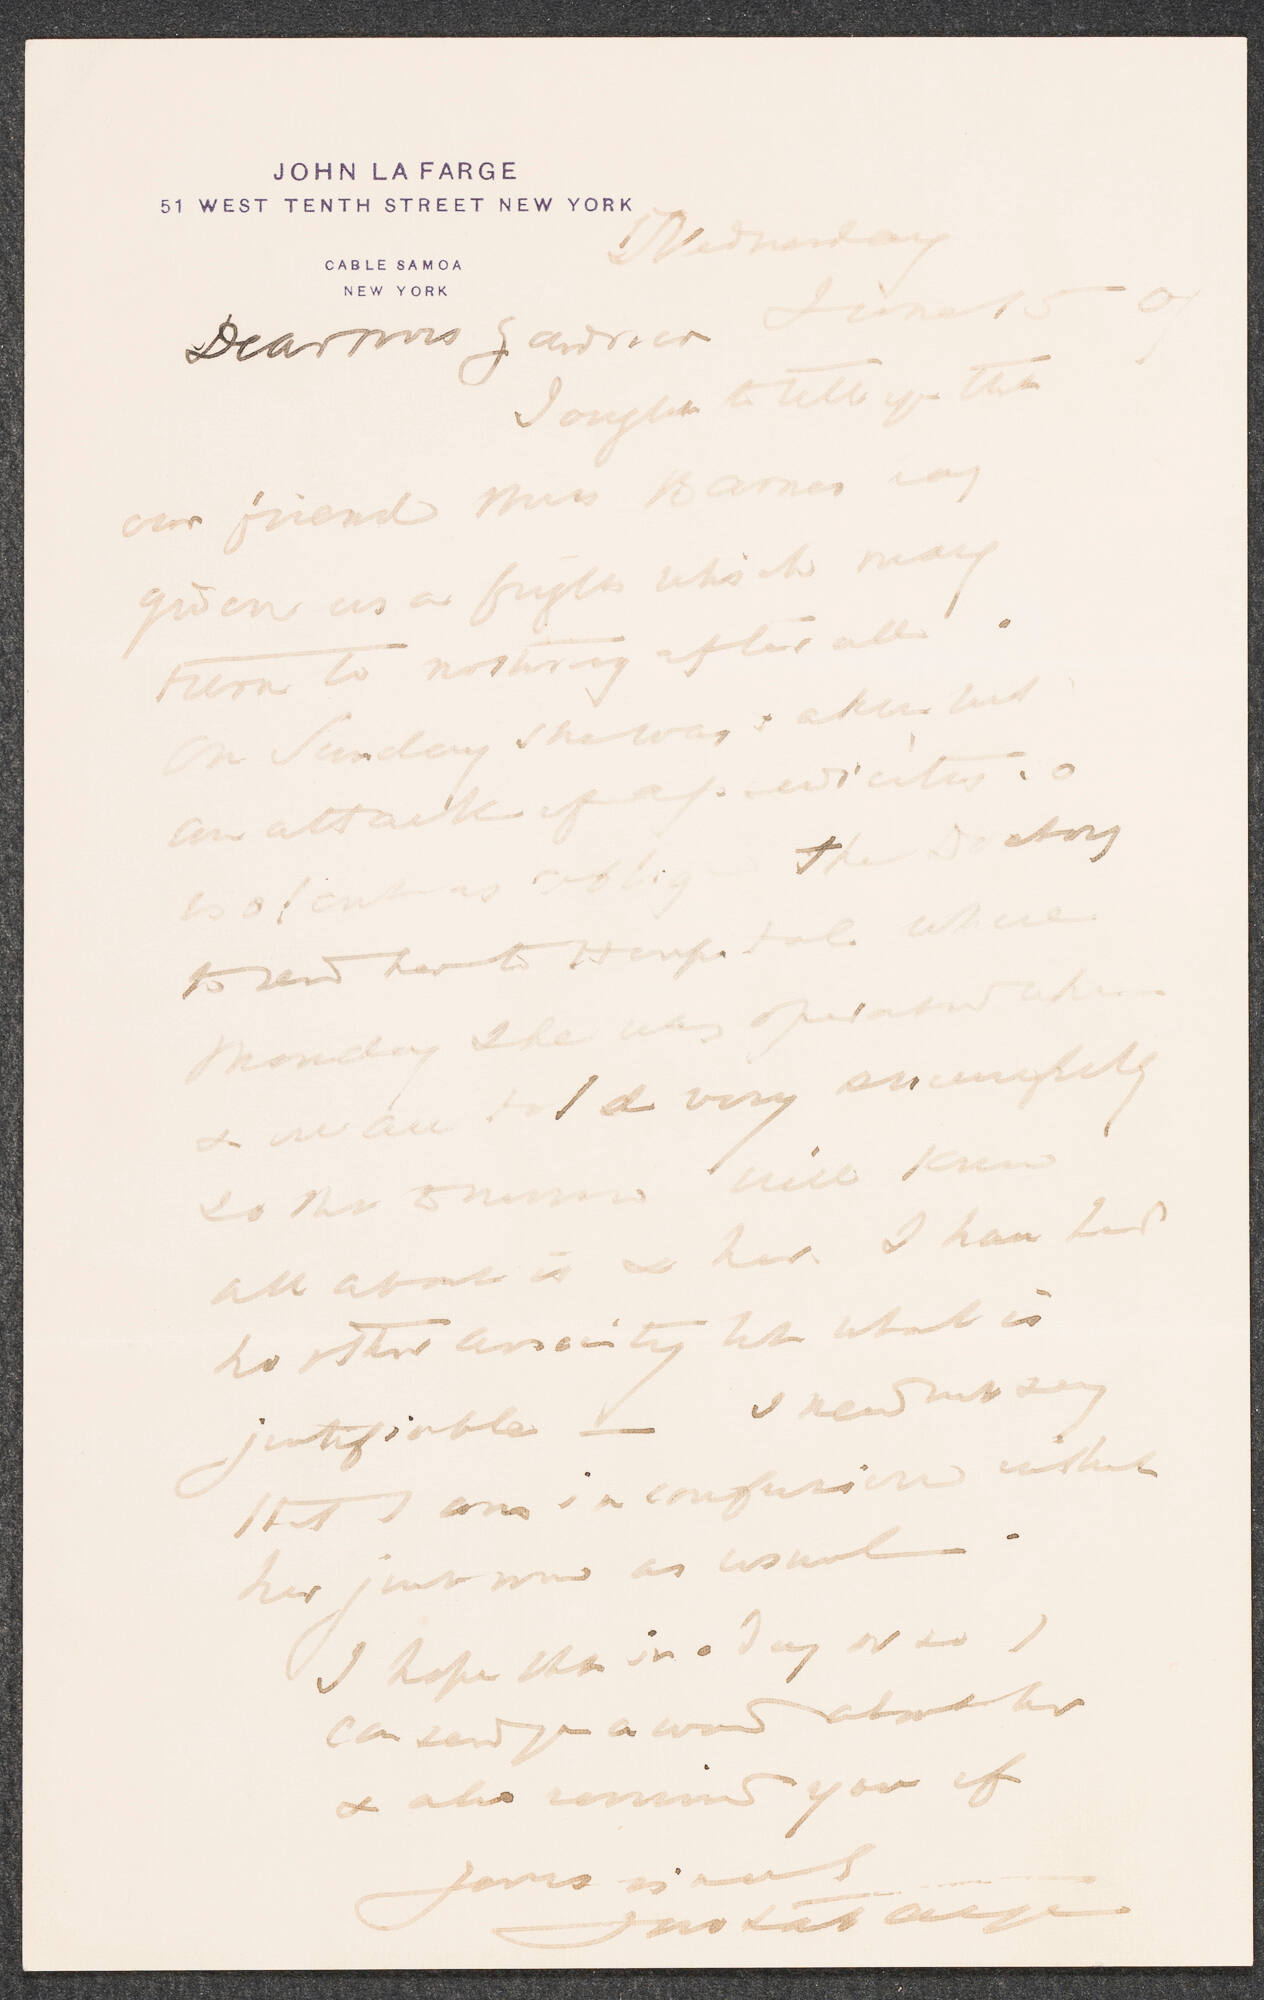 JOHN LA FARGE
51 WEST TENTH STREET NEW YORK
CABLE SAMOA
NEW YORK
Wednesday
June 15 07
Dear Mrs Gardner
I ought to tell you that
our friend Miss Barnes has
given us a fright which may
turn to nothing after all.
On Sunday she was taken with
an attack of appendicitis so
violent as oblige the Doctors
to send her to Hospital where
Monday she was operated when
& we are told very successfully
so that tomorrow will know
all about it & her. I have had
no other anxiety but what is
justifiable — I need not say
that I am in confusion without
her just now as usual.
I hope that in a day or so I
can send you a word about her
& also remind you of
yours sincerely
Jno La Farge